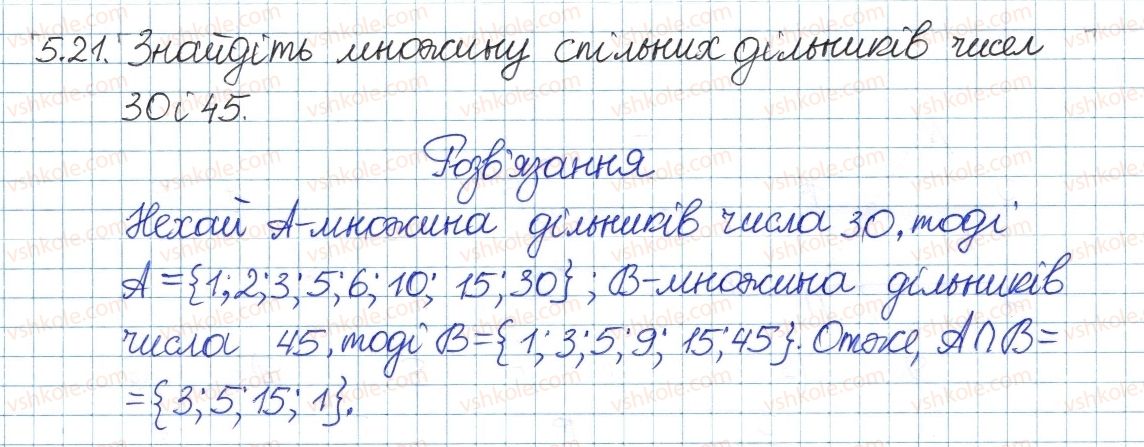 5.21. Знайдіть множину спільних дільників чисел
30 і 45.
Розв'язання
Нехай A-множина дільників числа 30, тоді
A={1; 2; 3; 5; 6; 10; 15; 30}; B-множина дільників
числа 45, тоді B={1; 3; 5; 9; 15; 45}. Отже, A∩B=
={3; 5; 15; 1}.